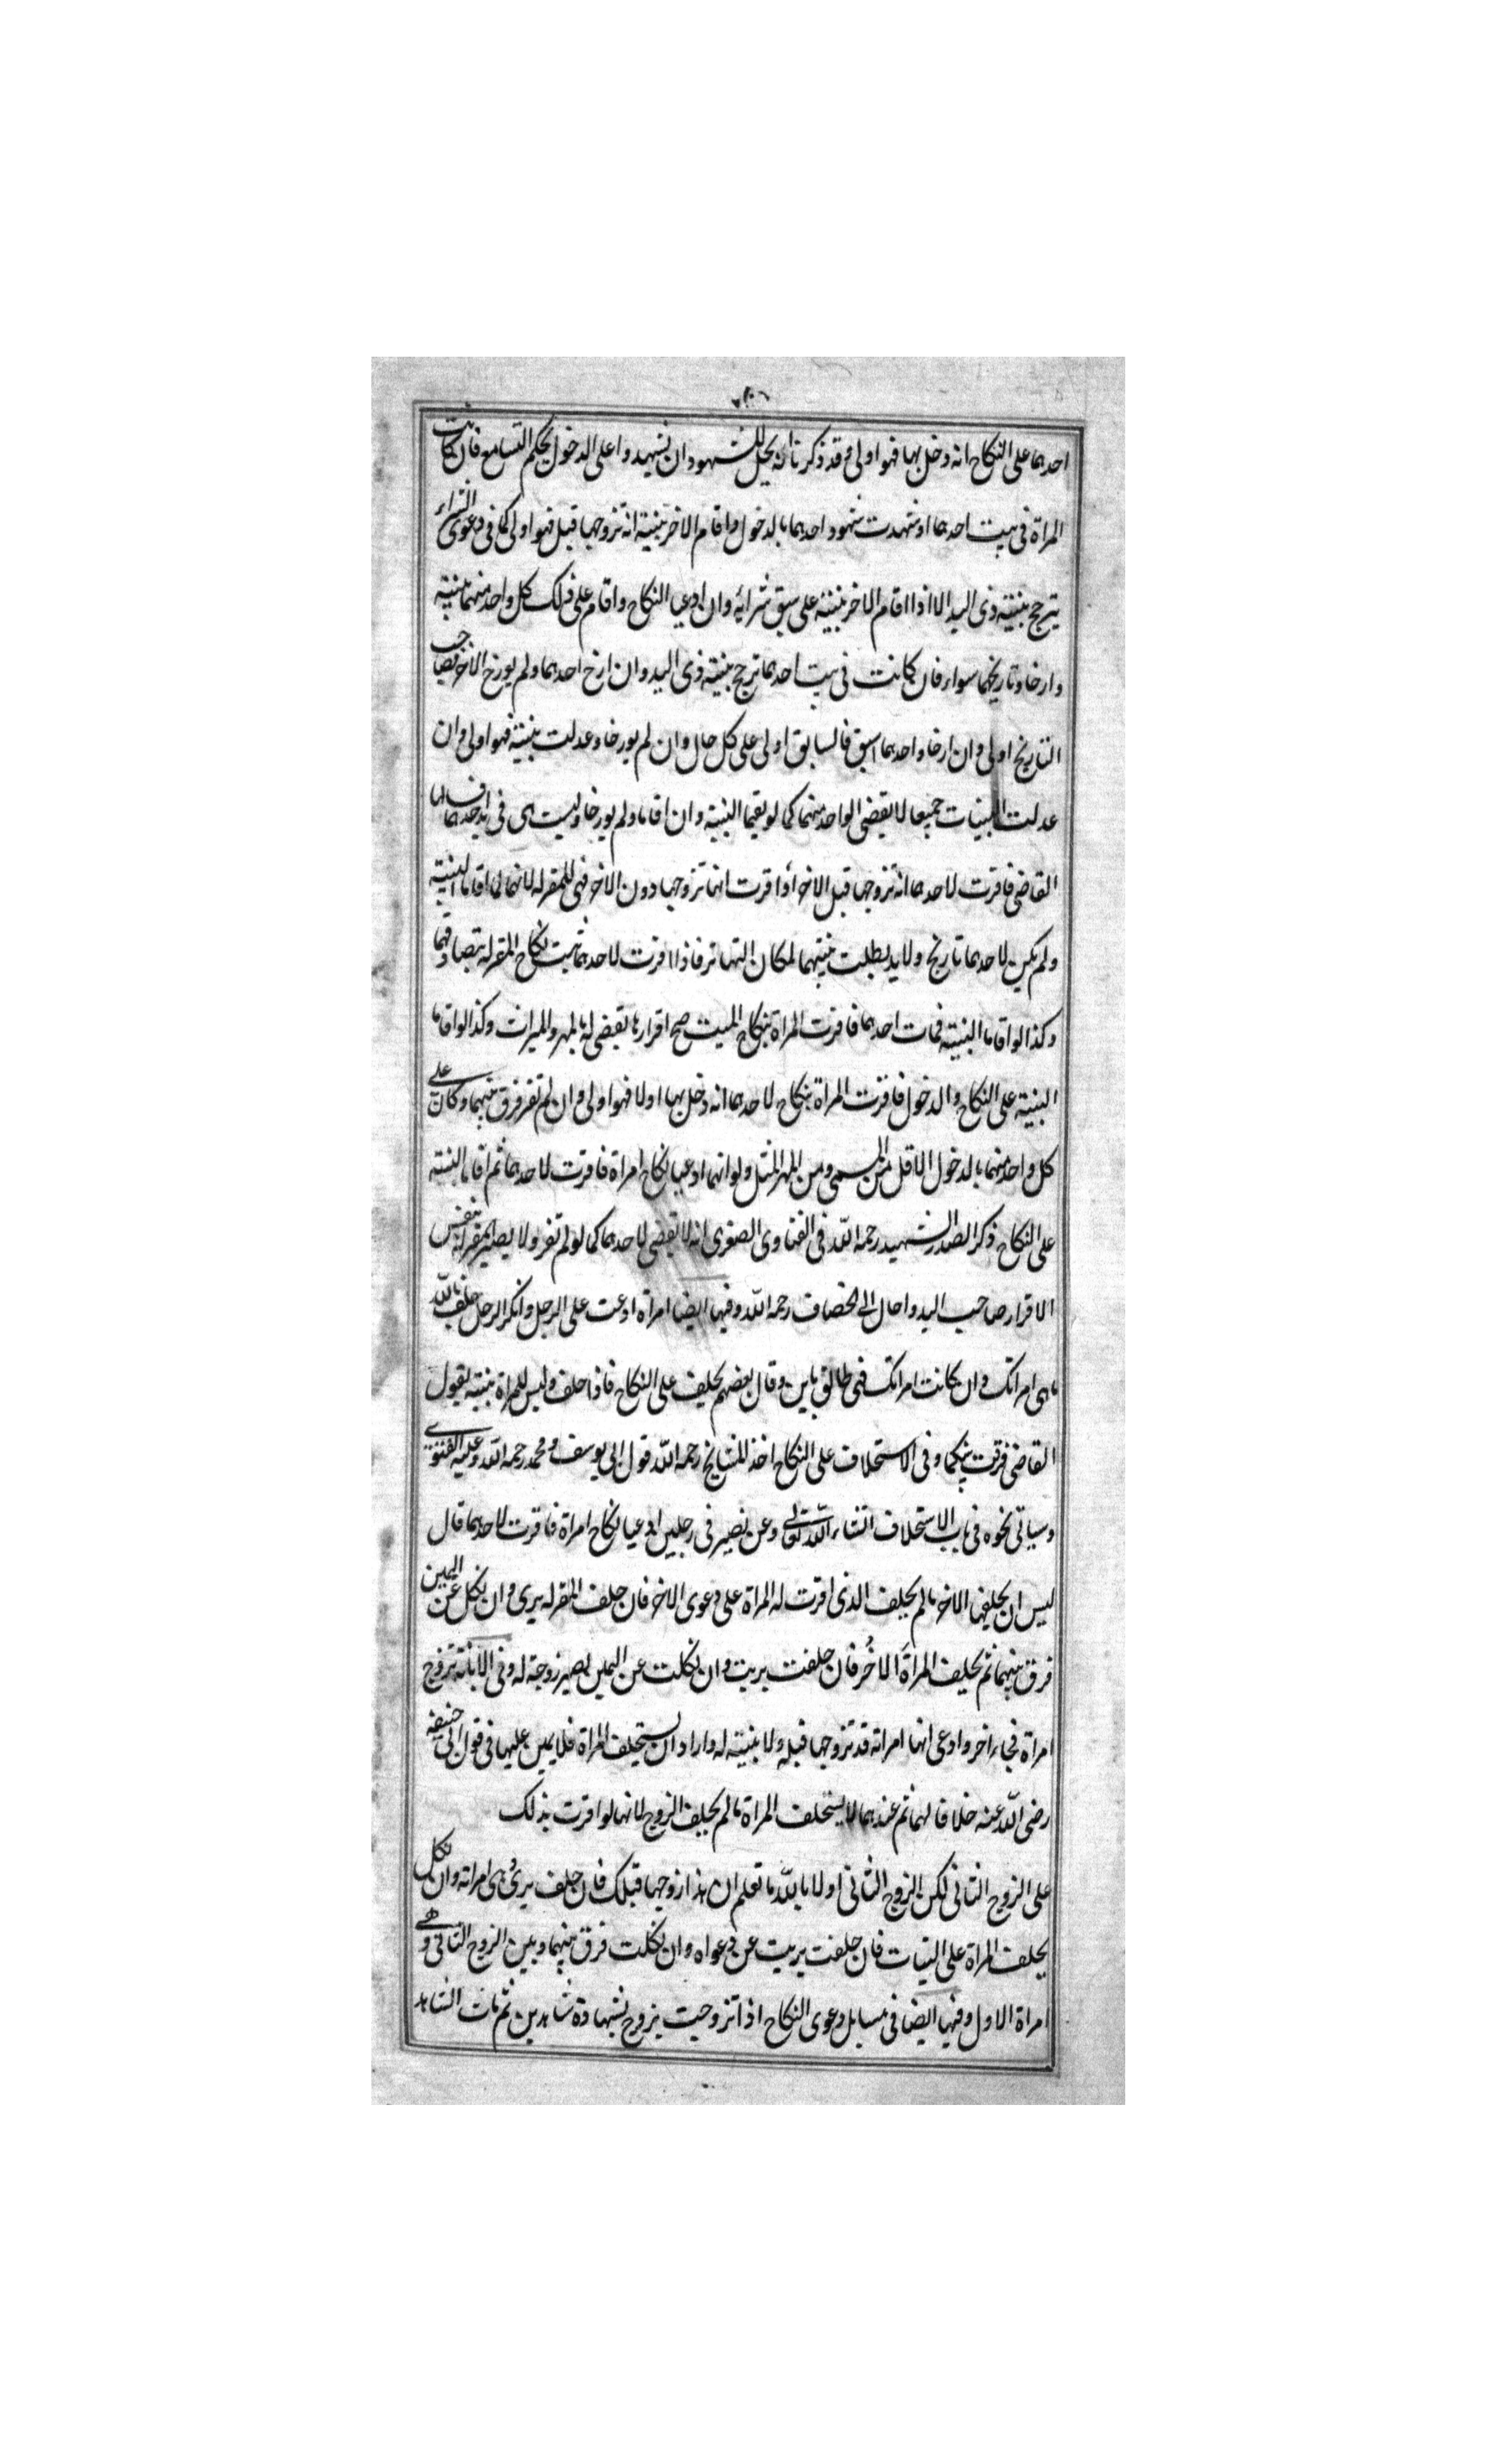 احدهما على النكاح انه دخل بها فهو اولى وقد ذكرنا انه يحل للشهود ان يشهدوا على الدخول بحكم التسامع فان كانت
المراة فى بيت احدهما او شهدت شهود احدهما بالدخول واقام الاخر بينة انه تزوجها قبل فهو اولى كما فى دعوى الشراء
يترجح بينة ذى اليد الا اذا اقام الاخر بينة على سبق شرائه وان ادعيا النكاح واقام على ذلك كل واحد منهما بينة
وارخا وتاريخهما سواء فان كانت فى بيت احدهما ترجح بينة ذى اليد وان ارخ احدهما ولم يورخ الاخر فصاحب
التاريخ اولى وان ارخا واحدهما اسبق فالسابق اولى على كل حال وان لم يورخا وعدلت بينة فهو اولى وان
عدلت البينات جميعا لا يقضى لواحد منهما كما لو يقيما البينة وان اقاما ولم يورخا وليست هى فى يد احدهما
القاضى فاقرت لاحدهما انه تزوجها قبل الاخر او اقرت انها تزوجها دون الاخر فهى للمقر له لانهما لما اقاما البينة
ولم يكن لاحدهما تاريخ ولا يد بطلت بينتهما لمكان التهاتر فاذا اقرت لاحدهما ثبت نكاح المقر له بتصادقهما
وكذا لو اقاما البينة فمات احدهما فاقرت المراة بنكاح الميت صح اقرارها يقضى لها بالمهر والميراث وكذا لو اقاما
البينة على النكاح والدخول فاقرت المراة بنكاح لاحدهما انه دخل بها اولا فهو اولى وان لم تقر فرق بينهما وكان على
كل واحد منهما بالدخول الاقل من المسمى ومن المهر المثل ولو انهما ادعيا نكاح امراة فاقرت لاحدهما ثم اقاما البينة
على النكاح ذكر الصدر الشهيد رحمه الله فى الفتاوى الصغرى انه لا يقضى لاحدهما كما لو لم تقر ولا يصير المقر له بنفس
الاقرار صاحب اليد واحال الى الخصاف رحمه الله وفيها ايضا امراة ادعت على الرجل وانكر الرجل حلف بالله
ما هى امراتك وان كانت امراتك فهى طالق باين وقال بعضهم يحلف على النكاح فاذا حلف وليس للمراة بينة يقول
القاضى فرقت بينكما وفى الاستحلاف على النكاح اخذ المشايخ رحمه الله قول ابى يوسف ومحمد رحمه الله وعليه الفتوى
وسياتى نحوه فى باب الاستحلاف انشاء الله تعالى وعن نصير فى رجلين ادعيا نكاح امراة فاقرت لاحدهما قال
ليس ان يحلفها الاخر ما لم يحلف الذى اقرت له المراة على دعوى الاخر فان حلف المقر له برى وان نكل عن اليمين
فرق بينهما ثم يحلف المراة الاخر فان حلفت بريت وان نكلت عن اليمين يصير زوجة له وفى الابانة تزوج
امراة فجاء اخر وادعى انها امراته قد تزوجها قبله ولا بينة له واراد ان يستحلف المراة فلا يمين عليها فى قول ابى حنيفة
رضى الله عنه خلافا لهما ثم عندهما لا يستحلف المراة ما لم يحلف الزوج لانها لو اقرت بذلك
على الزوج الثانى لكن الزوج الثانى اولا بالله ما تعلم ان هذا زوجها قبلك فان حلف برئ هى امراته وان نكل
يحلف المراة على البتات فان حلفت بريت عن دعواه وان نكلت فرق بينهما وبين الزوج الثانى وهى
امراة الاول وفيها ايضا فى مسايل دعوى النكاح اذا تزوجت بزوج بشهادة شاهدين ثم مات الشاهد